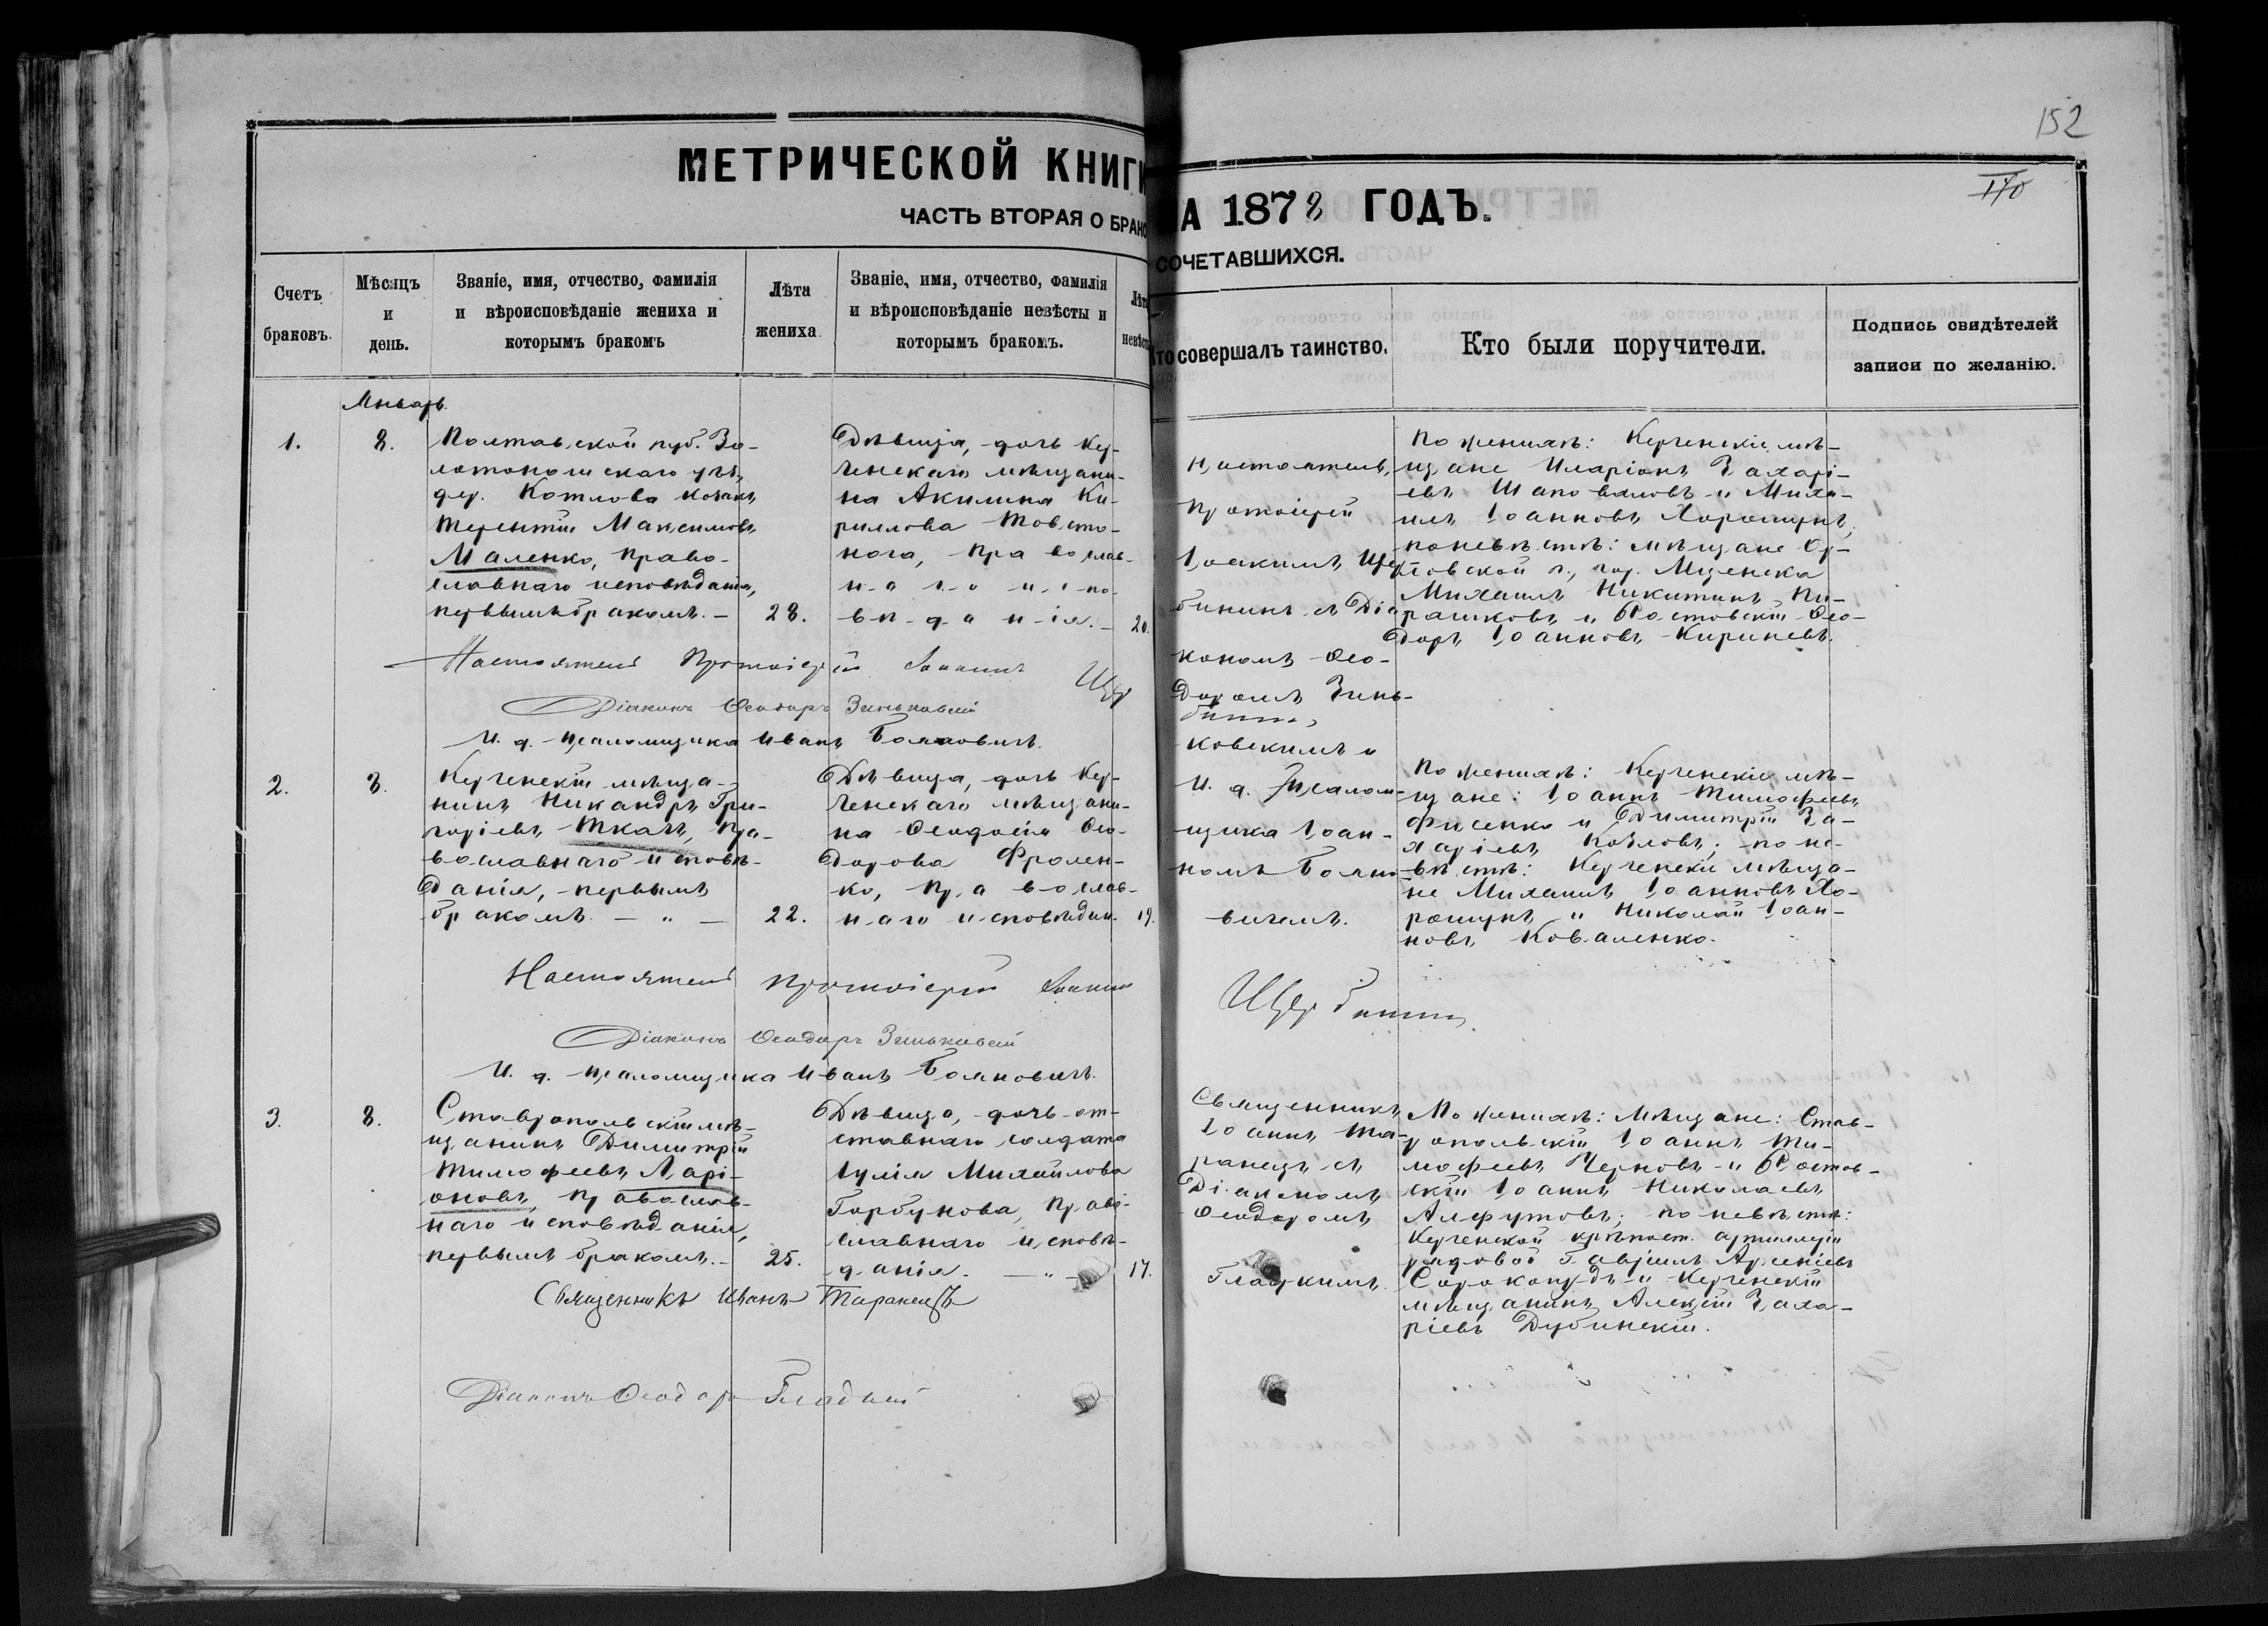 152
170
МЕТРИЧЕСКОЙ КНИГИ
А 1878 ГОДЪ.
ЧАСТЬ ВТОРАЯ О БРАКО
СОЧЕТАВШИХСЯ.
Счетъ браковъ.
Мѣсяцъ и день.
Званіе, имя, отчество, фамилія и вѣроисповѣданіе жениха и которымъ бракомъ
Лѣта жениха.
Званіе, имя, отчество, фамилія и вѣроисповѣданіе невѣсты и которымъ бракомъ.
Лѣта невѣст
Кто совершалъ таинство.
Кто были поручители.
Подпись свидѣтелей записи по желанію.
Январь.
1.
8.
Полтавской губ. Зо-
лотоношскаго уѣз.
дер. Котлова козакъ
Терентій Максимовъ
Маленко, право-
славнаго исповѣданія,
первымъ бракомъ. —
28.
Дѣвица, дочь Кер-
ченскаго мѣщани-
на Акилина Ки-
риллова Товсто-
нога, православ-
наго испо-
вѣданія. —
20.
Настоятель,
Протоіерей
Іоакимъ Щер
бининъ съ Діа
кономъ Ѳео-
доромъ Зинь-
ковскимъ и
И. д. Псалом-
щика Іоан-
номъ Бояно-
вичемъ.
По женихѣ: Керченскіе мѣ-
щане Иларіонъ Захарі-
евъ Шаповаловъ и Миха-
илъ Іоанновъ Хорошунъ,
по невѣстѣ: мѣщане Ор-
ловской г., гор. Мценска
Михаилъ Никитинъ Пи-
рашковъ и Ростовскій Ѳео-
доръ Іоанновъ Киричевъ.
Настоятель Протоіерей Іоакимъ Щер
бининъ
Діаконъ Ѳеодоръ Зиньковскій
И. д. псаломщика Иванъ Бояновичъ.
2.
8.
Керченскій мѣща-
нинъ Никандръ Гри-
горіевъ Ткачъ, пра-
вославнаго исповѣ-
данія, первымъ
бракомъ. — „ —
22.
Дѣвица, дочь Кер-
ченскаго мѣщани-
на Ѳеодосія Ѳео-
дорова Фролен-
ко, православ-
наго исповѣдан.
19.
По женихѣ: Керченскіе мѣ-
щане: Іоаннъ Тимофеевъ
Фисенко и Димитрій За-
харіевъ Козловъ; по не-
вѣстѣ: Керченскіе мѣща-
не Михаилъ Іоанновъ Хо-
рошунъ и Николай Іоан-
новъ Коваленко.
Настоятель Протоіерей Іоакимъ Щербининъ
Діаконъ Ѳеодоръ Зиньковскій
И. д. псаломщика Иванъ Бояновичъ.
3.
8.
Ставропольскій мѣ-
щанинъ Димитрій
Тимофеевъ Ларі-
оновъ, православ-
наго исповѣданія,
первымъ бракомъ. —
25.
Дѣвица, дочь от-
ставнаго солдата
Іулія Михайлова
Горбунова, право-
славнаго исповѣ-
данія. — „ —
17.
Священникъ
Іоаннъ Та-
ранецъ съ
Діакономъ
Ѳеодоромъ
Гладкимъ.
По женихѣ: Мѣщане: Став-
ропольскій Іоаннъ Ти-
мофеевъ Черновъ и Ростов-
скій Іоаннъ Николаевъ
Алфутовъ; по невѣстѣ:
Керченской крѣпост. артиллеріи
рядовой Гавріилъ Арсеніевъ
Сорокопудъ и Керченскій
мѣщанинъ Алексій Заха-
ріевъ Дубинскій.
Священникъ Иванъ Таранецъ
Діаконъ Ѳеодоръ Гладкій